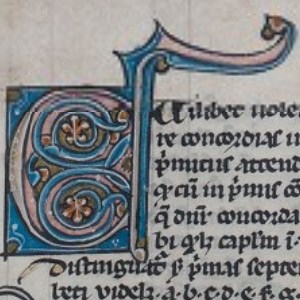 CUilibet uole
re concordias i
p̄mitus attend
q cū in p̄mis cō
q̄ dn̄r concorda
bi qꝉ capl̄m ī
Distinguit᷑ ī p̄mas septe
beti videlꝫ .a.b.c.d.e.f.g.